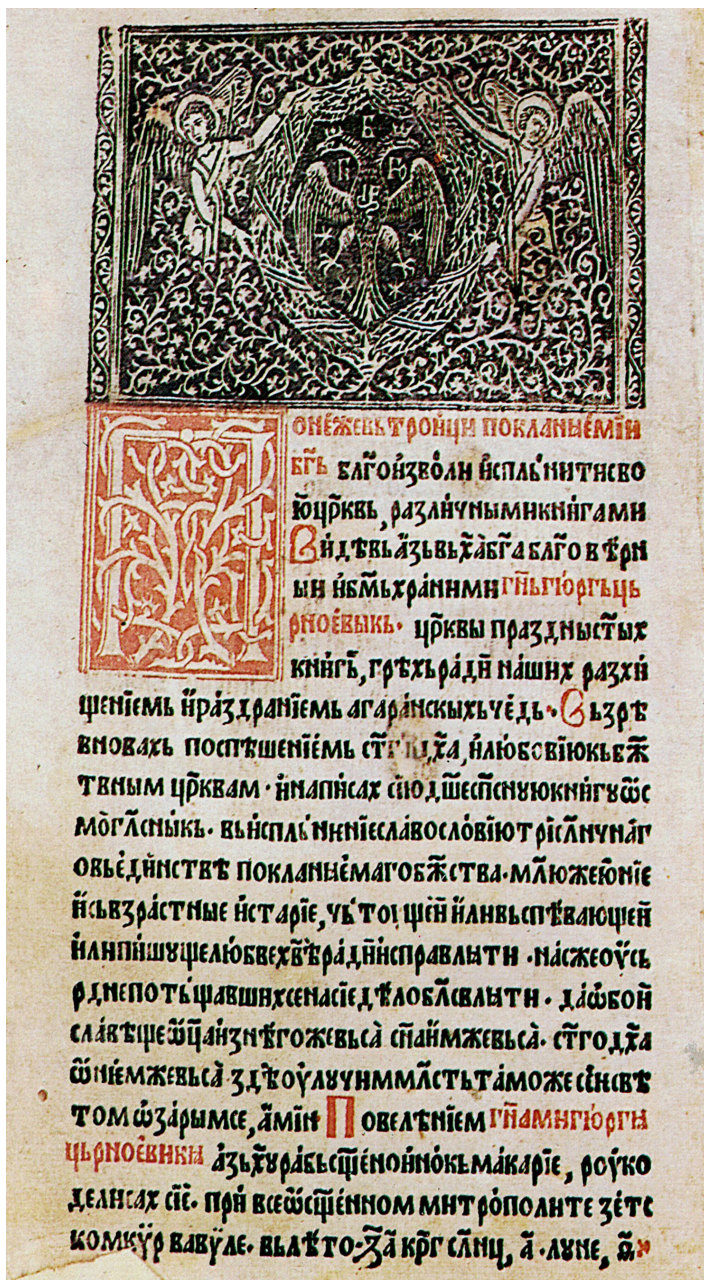 Понеже вь троици покланыемїи
б҃гь бл҃гоизволи испльнити сво
ю цр҃квь, различными книгами
Видѣвь азь вь х҃а б҃га бл҃говѣрн
ыи и б҃мь храними г҃нь гюргь ць
рноевыкь· цр҃квы праздны ст҃ых
книгь, грѣхь ради наших разхи
щенїемь и раздранїемь агаранскыхь чедь· Вьзрѣ
вновахь поспѣшенїемь ст҃го д҃ха, и любовїю кь бж҃
твным цр҃квам· и написах сїю дш҃еспс҃ную книгу ѡс
могл҃сныкь· вь испльнкнїе славословїю трисл҃нчнаг
о вь единствѣ покланыемаго бж҃ства· мл҃ю же юнїе
и сьврастные и старїе, чьтоущеи или вьспѣвающеи
или пишуще любве х҃вѣ ради исправлыти· нас же оусь
рдне потьщавших се на сїе дѣло бл҃свлыти· да ѡбои
славеще ѡц҃а из нѣгоже вьса с҃на имже вьса· ст҃го д҃ха
ѡ нкмже вьса· здѣ оулучим мл҃сть тамо же син свѣ
том ѡзарым се, амїн Повелѣнїем г҃на ми гюргы
црьноевыкы азь х҃у рабь сщ҃енноинокь макарїе, роуко
делисах сїе· при всеѡсщ҃енном митрополите зетс
ком кѵр вавѵле· вь лѣто· ҂з҃а крг҃ сл҃нц, а҃ · луне, а҃і